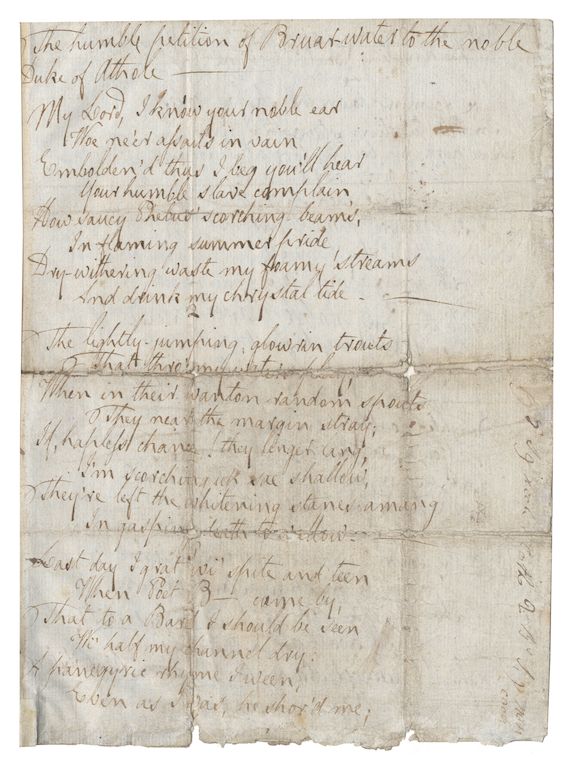 The humble petition of Bruar-water to the noble
Duke of Athole —
My Lord, I know your noble ear
Woe ne'er assails in vain
Embolden'd thus I beg you'll hear
Your humble slave complain
How saucy Phebus scorching beams,
In flaming summer pride,
Dry-withering waste my foamy streams
And drink my chrystal tide —
2
The lightly-jumping, glowrin trouts
That thro' my waters play
When in their wanton random spouts
They near the margin stray;
If, hapless chance! they linger lang,
I'm scorching up sae shallow,
They're left the whitening stanes amang
In gasping death to wallow.
Last day I grat wi' spite and teen
When Poet B— came by,
That to a Bard I should be seen
Wi' half my channel dry:
A panegyric rhyme I ween,
Even as I was, he shor'd me;